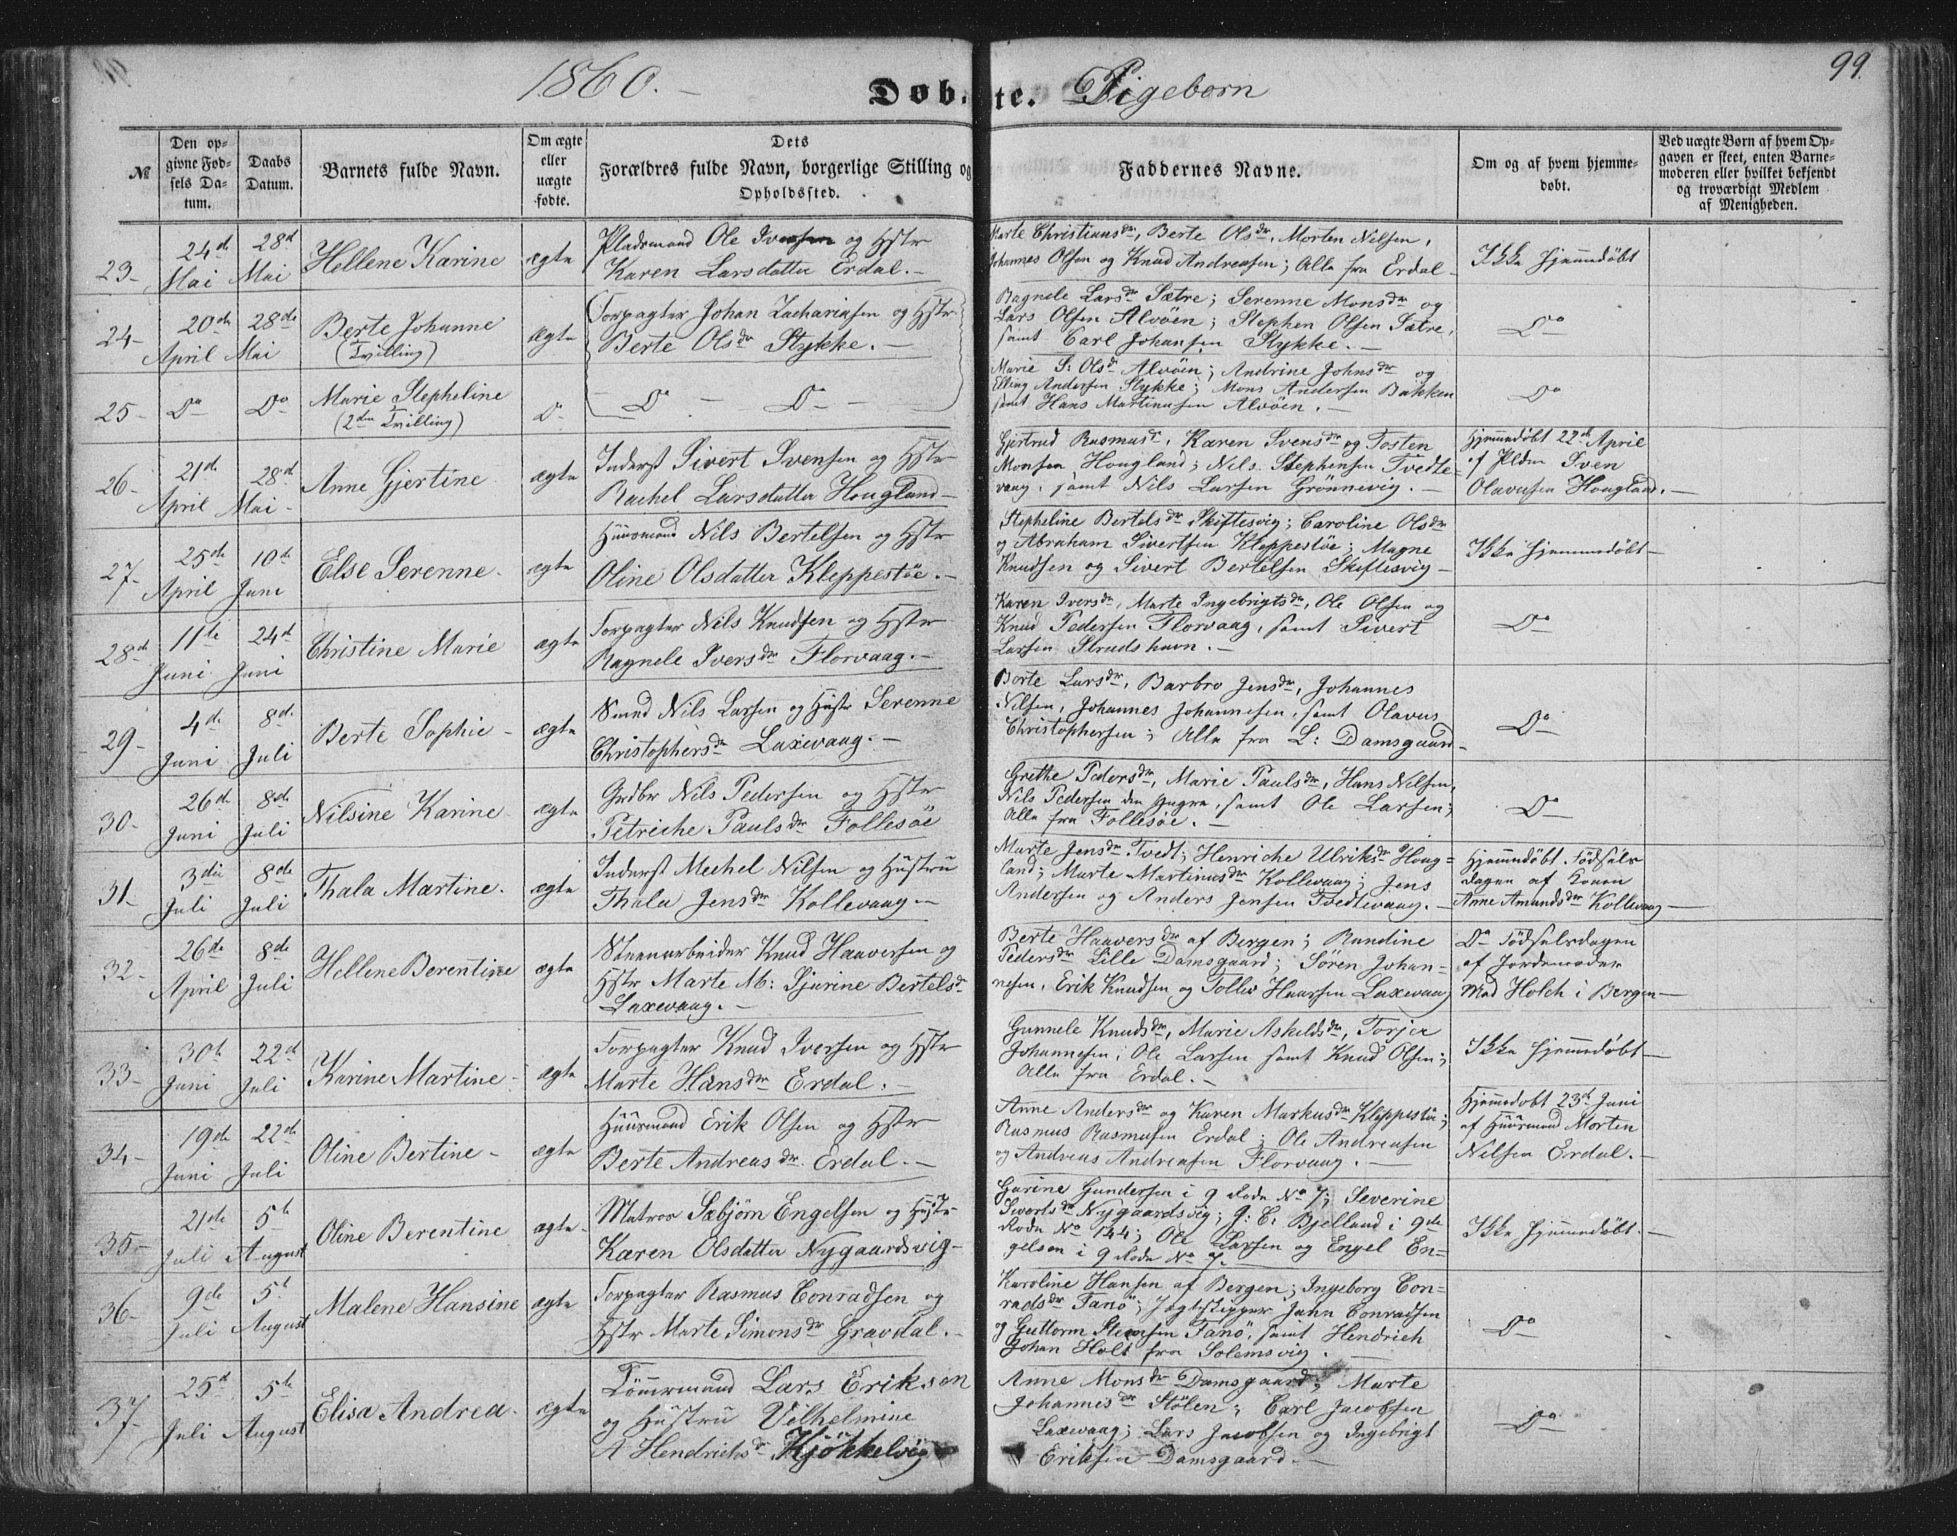 1860. –
Døbte. Pigebørn
99.
№
Den opgivne Fødsels Datum.
Daabs Datum.
Barnets fulde Navn.
Om ægte eller uægte fødte.
Dets Forældres fulde Navn, borgerlige Stilling og Opholdssted.
Faddernes Navne.
Om og af hvem hjemmedøbt.
Ved uægte Børn af hvem Opgaven er skeet, enten Barnemoderen eller hvilket bekjendt og troværdigt Medlem af Menigheden.
23– 24de Mai 28d Mai Hellene Karine ægte
Pladsmand Ole Iversen og Hstr
Karen Larsdatter Erdal. –
Marte Christiansdr, Berte Olsdr, Morten Nilsen,
Johannes Olsen og Knud Andreasen; Alle fra Erdal –
Ikke hjemmedøbt
24– 20de April 28de Mai Berte Johanne (Tvilling) ægte
Forpagter Johan Zachariasen og Hstr
Berte Olsdr Stykke. –
Ragnele Larsdr Sætre; Serenne Monsdr og
Lars Olsen Alvöen; Stephen Olsen Sætre,
samt Carl Johansen Stykke. –
Do
25– Do Do Marie Stepheline (2den Tvilling) Do
Do – Do –
Marie S: Olsdr Alvöen; Andrine Johnsdr og
Elling Andersen Stykke; Mons Andersen Bakken
samt Hans Martinusen Alvöen. –
Do
26– 21de April 28de Mai – Anne Gjertine ægte
Inderst Sivert Svensen og Hstr
Rachel Larsdatter Hougland –
Gjertrud Rasmusdr, Karen Svensdr og Tosten
Monsen Hougland; Nils Stephensen Tvedte-
vaag, samt Nils Larsen Grönnevig. –
Hjemmedøbt 22de April
af Pldm Sven
Olavusen Hougland. –
27– 25de April 10de Juni Else Serenne – ægte
Huusmand Nils Bertelsen og Hstr
Oline Olsdatter Kleppestöe. –
Stepheline Bertelsdr Skiftesvig; Caroline Olsdr
og Abraham Sivertsen Kleppestöe; Magne
Knudsen og Sivert Bertelsen Skiftesvig –
Ikke hjemmedøbt –
28d 11te Juni 24d Juni Christine Marie ægte
Forpagter Nils Knudsen og Hstr
Ragnele Iversdr Florvaag. –
Karen Iversdr, Marte Ingebrigtsdr, Ole Olsen og
Knud Pedersen Florvaag, samt Sivert
Larsen Strudshavn. –
Do
29– 4de Juni 8de Juli Berte Sophie – ægte
Smed Nils Larsen og Hustr Serenne
Christophersdr Laxevaag. –
Berte Larsdr, Barbro Jensdr, Johannes
Nilsen, Johannes Johannesen, samt Olavus
Christophersen; Alle fra L: Damsgaard –
Do
30– 26de Juni 8de Juli Nilsine Karine ægte
Grdbr Nils Pedersen og Hstr
Petriche Paulsdr Follesöe
Grethe Pedersdr, Marie Paulsdr, Hans Nilsen,
Nils Pedersen den Yngre, samt Ole Larsen;
Alle fra Follesöe. –
Do
31– 3die Juli 8de Juli Thala Martine – ægte
Inderst Mechel Nilsen og Hustru
Thala Jensdr Kollevaag –
Marte Jensdr Tvedt; Henriche Ulriksdr Houg-
land; Marte Martinusdr Kollevaag; Jens
Andersen og Anders Jensen Tvedtevaag. –
Hjemmedøbt Fødsels
dagen af Konen
Anne Amundsdr Kollevaag –
32– 26de April 8de Juli Hellene Berentine ægte
Steenarbeider Knud Haaversen og
Hstr Marte M: Sjurine Bertelsdr
Laxevaag. –
Berte Haaversdr af Bergen; Randine
Pedersdr Lille Damsgaard; Søren Johan-
nesen, Erik Knudsen og Tollev Haarsen Laxevaag
Do Fødselsdagen
af Jordemoder
Mad Holch i Bergen –
33– 30te Juni 22d Juli Karine Martine – ægte
Forpagter Knud Iversen og Hstr
Marte Hansdr Erdal. –
Gunnele Knudsdr, Marie Askeldsdr, Torjer
Johannesen; Ole Larsen samt Knud Olsen;
Alle fra Erdal. –
Ikke hjemmedøbt –
34– 19de Juni 22de Juli Oline Bertine – ægte
Huusmand Erik Olsen og Hstr
Berte Andreasdr Erdal. –
Anne Andersdr og Karen Markusdr Kleppestöe;
Rasmus Rasmusen Erdal; Ole Andreasen
og Andreas Andreasen Florvaag. –
Hjemmedobt 23de Juni
af Huusmand Morten
Nilsen Erdal. –
35– 21de Juli 5te August Oline Berentine ægte
Matros Sæbjörn Engelsen og Hustr
Karen Olsdatter Nygaardsvig –
Garine Gundersen i 9 Rode No 7; Severine
Sivertsdr Nygaardsvig; J: C: Bjelland i 9de
Rode No 144; Ole Larsen og Engel En-
gelsen i 9 Rode No 7. –
Ikke hjemmedøbt. –
36– 9de Juli 5te August Malene Hansine ægte
Forpagter Rasmus Conradsen og
Hstr Marte Simonsdr Gravdal. –
Karoline Hansen af Bergen; Ingeborg Con-
radsdr Tanö; Jagtskipper John Conradsen
og Guttorm Steensen Tanö, samt Hendrich
Johan Holt fra Solemsvig. –
Do
37– 25d Juli 5te August Elisa Andrea – ægte
Tömmermand Lars Eriksen
og Hustru Vilhelmine
A Hendrichsdr Kjökkelvig
Anne Monsdr Damsgaard; Marte
Johannesdr Stölen; Carl Jacobsen
Laxevaag; Lars Jacobsen og Ingebrigt
Eriksen Damsgaard. –
Do